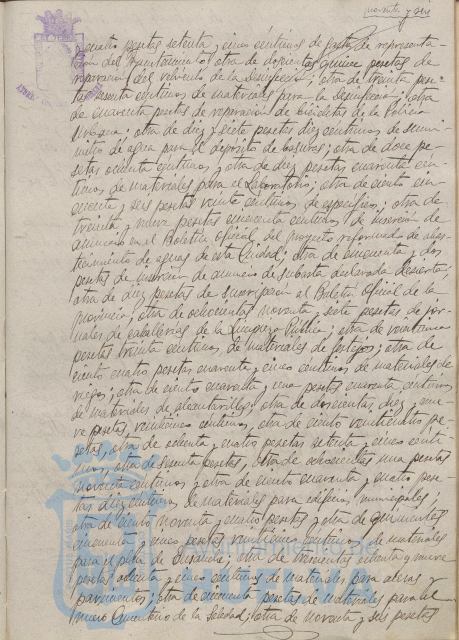 noventa y seis
cuatro pesetas setenta y cinco céntimos de gastos de representa-
ción del Ayuntamiento; otra de doscientas quince pesetas de
reparación del vehículo de la Desinfección; otra de treinta pese-
tas sesenta céntimos de materiales para la desinfección; otra
de cuarenta pesetas de reparación de bicicletas de la Policía
Urbana; otra de diez y siete pesetas diez céntimos de sumi-
nistro de agua para el depósito de basuras; otra de doce pe-
setas ochenta céntimos y otra de diez pesetas cuarenta cén-
timos de materiales para el Laboratorio; otra de ciento cin-
cuenta y seis pesetas veinte céntimos de específicos; otra de
treinta y nueve pesetas cincuenta céntimos de inserción de
anuncio en el Boletín Oficial del proyecto reformado de abas-
tecimiento de aguas de esta Ciudad; otra de cincuenta y dos
pesetas de inserción de anuncio de subasta declarada desierta;
otra de diez pesetas de suscripción al Boletín Oficial de la
provincia; otra de ochocientas noventa y siete pesetas de jor-
nales de caballerías de la Limpieza Pública; otra de
pesetas treinta céntimos de materiales de festejos; otra de
ciento cuatro pesetas cuarenta y cinco céntimos de materiales de
riegos; otra de ciento cuarenta y una pesetas cuarenta céntimos
de materiales de alcantarillas; otra de doscientas diez y nue-
ve pesetas veinticinco céntimos, otra de ciento veinticuatro pe-
setas, otra de ochenta y cuatro pesetas setenta y cinco cénti-
mos, otra de sesenta pesetas, otra de ochocientas una pesetas
noventa céntimos y otra de ciento cuarenta y cuatro pese-
tas diez céntimos de materiales para edificios municipales;
otra de ciento noventa y cuatro pesetas y otra de quinientas
cincuenta y cinco pesetas veinticinco céntimos de materiales
para el plan de Ensanche; otra de trescientas ochenta y nueve
pesetas ochenta y cinco céntimos de materiales para aceras y
pavimentos; otra de cincuenta pesetas de materiales para el
nuevo Cementerio de la Soledad; otra de noventa y seis pesetas